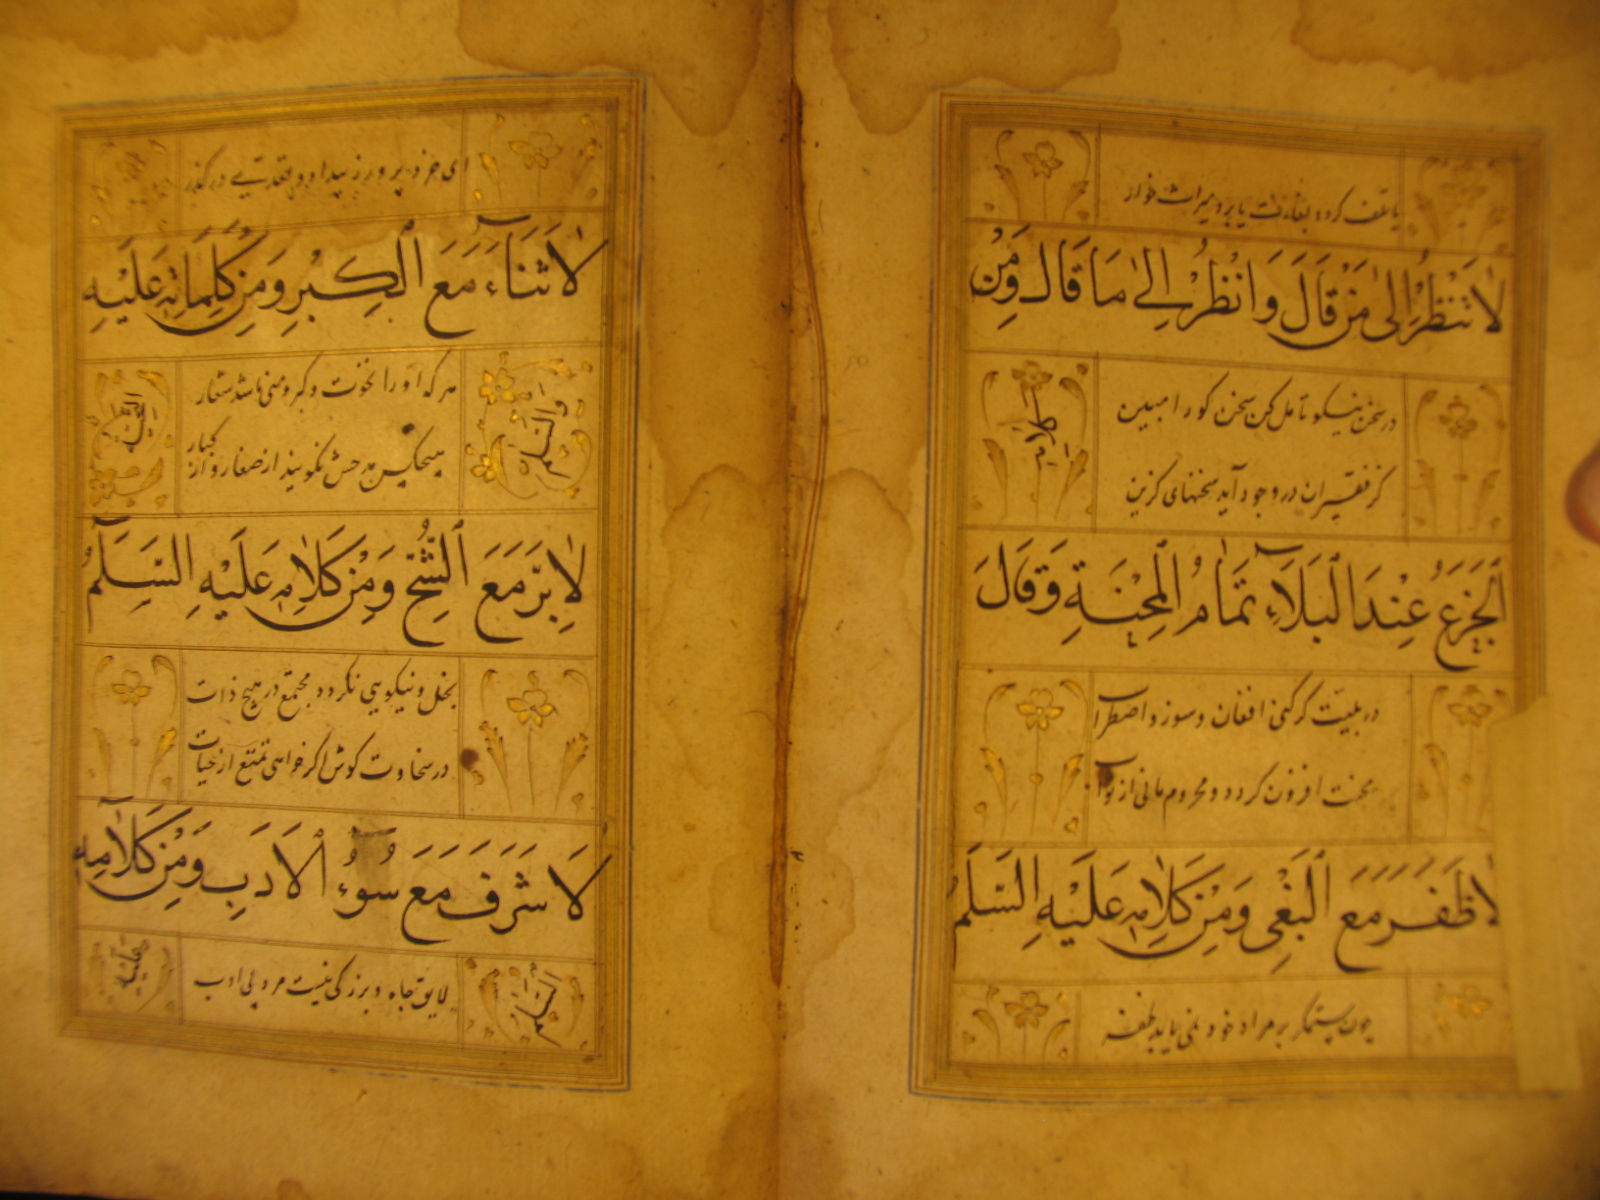 یا تلف گردد بغارت یا برد میراث خوار
لَا تَنْظُرْ إِلَىٰ مَنْ قَالَ وَانْظُرْ إِلَىٰ مَا قَالَ وَمِنْ
كَلَامِهِ
در سخن نیکو تأمل کن سخن گو را مبین
کز فقیران در وجود آید سخنهای گزین
اَلْجَزَعُ عِنْدَ الْبَلَآءِ تَمَامُ الْمِحْنَةِ وَقَالَ
در بلیت گر کنی افغان و سوز و اضطراب
محنت افزون گردد و محروم مانی از ثواب
لَا ظَفَرَ مَعَ الْبَغْیِ وَمِنْ كَلَامِهِ عَلَيْهِ السَّلَمُ
چون ستمگر بر مراد خود نمی یابد ظفر
ای خرد پرور ز بیداد و تعدی در گذر
لَا ثَنَاءَ مَعَ الْكِبْرِ وَمِنْ كَلِمَاتِهِ عَلَيْهِ
هر که او را نخوت و کبر و منی باشد شعار
هیچکس مدحش نگویند از صغار و از کبار
لَا بِرَّ مَعَ الشُّحِّ وَمِنْ كَلَامِهِ عَلَيْهِ السَّلَمُ
بخل و نیکویی نگردد مجتمع در هیچ ذات
در سخاوت کوش اگر خواهی تمتع از حیات
لَا شَرَفَ مَعَ سُوْءِ الْاَدَبِ وَمِنْ كَلَامِهِ
عليه
السلام
لایق جاه و بزرگی نیست مرد بی ادب